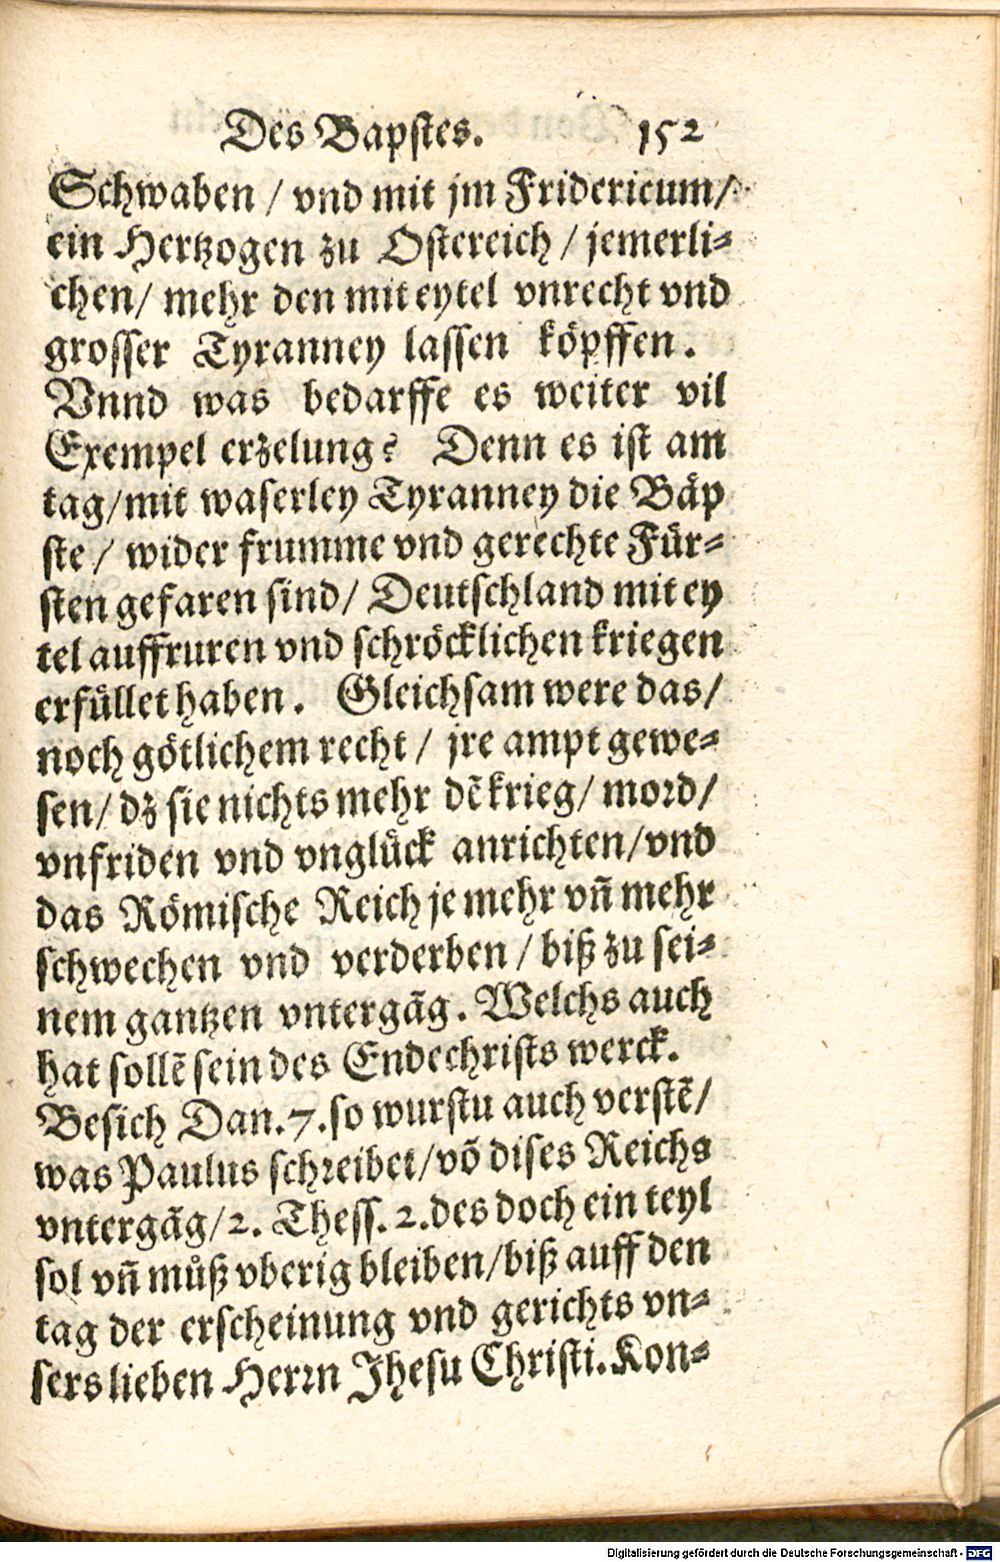 Des Bapstes. 152
Schwaben / vnd mit jm Fridericum/
ein Hertzogen zu Ostereich / jemerli-
chen/ mehr den mit eytel vnrecht vnd
grosser Tyranney lassen köpffen.
Vnnd was bedarffe es weiter vil
Exempel erzelung? Denn es ist am
tag/mit waserley Tyranney die Bäp
ste / wider frumme vnd gerechte Für-
sten gefaren sind/ Deutschland mit ey
tel auffruren vnd schröcklichen kriegen
erfüllet haben. Gleichsam were das/
noch götlichem recht / jre ampt gewe-
sen/ dz sie nichts mehr dẽ krieg/ mord/
vnfriden vnd vnglück anrichten/vnd
das Römische Reich je mehr vñ mehr
schwechen vnd verderben / biß zu sei-
nem gantzen vntergãg. Welchs auch
hat sollẽ sein des Endechrists werck.
Besich Dan.7.so wurstu auch verstẽ/
was Paulus schreibet/võ dises Reichs
vntergãg/2. Thess.2.des doch ein teyl
sol vñ můß vberig bleiben/biß auff den
tag der erscheinung vnd gerichts vn-
sers lieben Herrn Jhesu Christi. Kon-
Digitalisierung gefördert durch die Deutsche Forschungsgemeinschaft - DFG